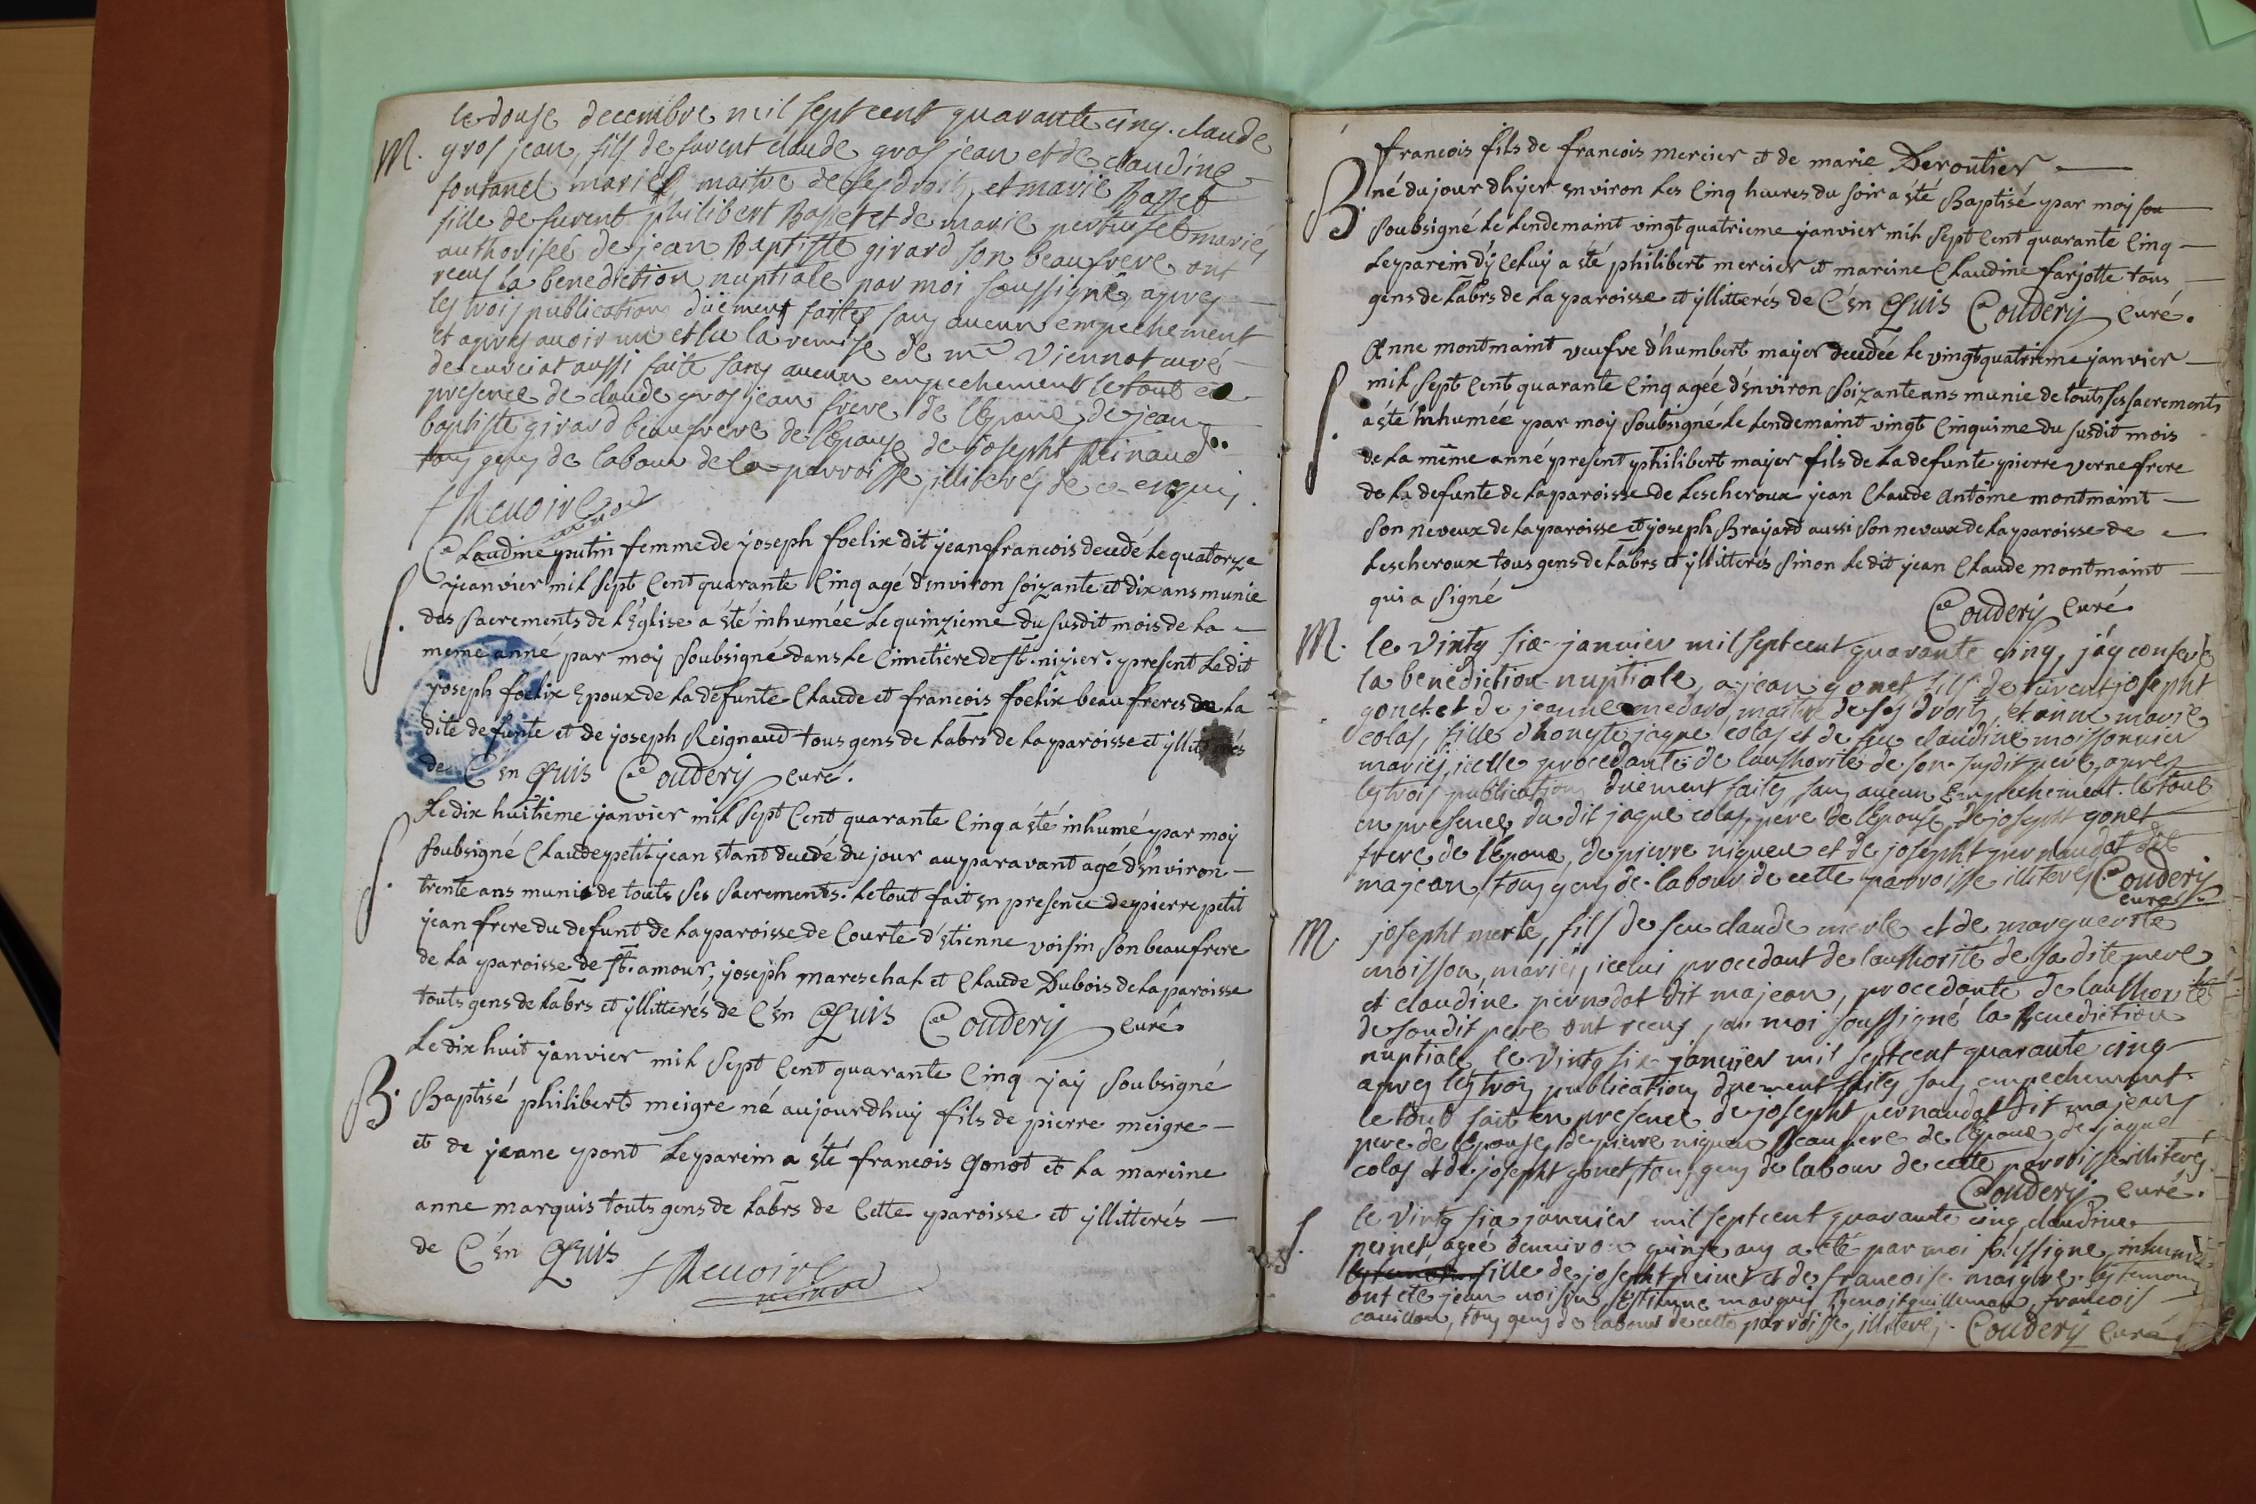 le douse decembre mil sept cent quarante cinq. claude
M. gros jean, fils de furent claude gros jean et de claudine
fontanel mariés maitre de ses droits, et marie Basset
fille de furent philibert Basset et de marie pertuiset mariés
authorisée de jean Baptiste girard son beaufrere ont
receus la benediction nuptiale par moi soussigné, apres
les trois publications düement faites sans aucun empechement
et apres avoir vu et lu la remise de mr Viennot curé
de curciat aussi faite sans aucun empechement le tout en
presence de claude gros jean frere de l'epoux, de jean
baptiste girard beaufrere de l'epouse de josepht Reinaud
tous gens de labour de la parroisse illiterés de ce enquis.
Renoire
Claudine putin femme de joseph foelix dit jean francois decedé le quatorze
S. jeanvier mil sept cent quarante cinq agé d'environ soizante et dix ans munie
des sacrements de l'Eglise a été inhumée le quinzieme du susdit mois de la
meme anné par moy soubsigné dans le cimetiere de st. nizier. present ledit
joseph foelix epoux de la defunte claude et francois foelix beau freres de la
dite defunte et de joseph Reignaud tous gens de labrs de la paroisse et yllitterés
de c'en Quis Couderÿ curé.
S. Le dix huitieme janvier mil sept cent quarante cinq a été inhumé par moy
soubsigné claude petit jean étant decedé du jour auparavant agé d'environ
trente ans munis de touts ses sacrements. Le tout fait en presence de pierre petit
jean frere du defunt de la paroisse de courte d'etienne voisin son beaufrere
de la paroisse de st. amour, joseph mareschal et claude Dubois de la paroisse
touts gens de labrs et yllitterés de c'en Quis Couderÿ curé
Le dix huit janvier mil sept cent quarante cinq j'aÿ soubsigné
B. Baptisé philibert meigre né aujourdhuy fils de pierre meigre
et de jeane pont le parein a été francois Gonot et la mareine
anne marquis touts gens de labrs de cette paroisse et yllitterés
de c'en Quis Renoire
francois fils de francois mercier et de marie Deroutier
B. né du jour dhyer environ les cinq heures du soir a été Baptisé par moy sou
soubsigné le lendemaint vingt quatrieme janvier mil sept cent quarante cinq
le parein d'ÿceluy a été philibert mercier et mareine claudine farjotte tous
gens de labrs de la paroisse et yllitterés de c'en Quis Couderÿ curé.
Anne montmaint veufve d'humbert mayer decedée le vingt quatrieme janvier
S. mil sept cent quarante cinq agée d'environ soizante ans munie de touts ses sacrements
a été inhumée par moy soubsigné le lendemaint vingt cinquime du susdit mois
de la même anné present philibert mayer fils de la defunte pierre verne frere
de la defunte de la paroisse de Lescheroux jean claude Antoine montmaint
son neveux de la paroisse et joseph Brayard aussi son neveux de la paroisse de
Lescheroux tous gens de labrs et yllitterés sinon le dit jean claude montmaint
qui a signé Couderÿ curé
M. le vintg six janvier mil sept cent quarante cinq, j'áy conferé
la benediction nuptiale, a jean gonet fils de furent josepht
gonet et de jeanne medard, maitre de ses droits, et anne marie
colas, fille d'honeste jaque colas et de feu claudine moissonnier
mariés, icelle procedante de l'authorité de son susdit pere, apres
les trois publications düement faites sans aucun empechement. le tout
en presence du dit jaque colas, pere de l'epouse, de josepht gonet
frere de l'epoux, de pierre niqueu et de josepht pernaudat dit
majean, tous gens de labour de cette parroisse illiterés Couderÿ
curé.
M josepht merle, fils de feu claude merle et de marguerite
moisson, mariés, icelui procedant de l'authorité de sa dite mere
et claudine pernodat dit majean, procedante de l'authorité
de son dit pere ont receus par moi soussigné la benediction
nuptiale le vintg six janvier mil sept cent quarante cinq
apres les trois publications düement faites sans empechement
le tout fait en presence de josepht pernaudat dit majean
pere de l'epouse, de pierre niqueu beaupere de l'epoux, de jaque
colas et de josepht gonet, tous gens de labour de cette parroisse illiterés.
Couderÿ curé.
S. le vintg six janvier mil sept cent quarante cinq, claudine
peinet agée d'environ quinse ans a été par moi soussigné inhumée
fille de josepht peinet et de francoise maigre. les temoins
ont été jean voisin, estienne marquis, benoist guilleman, francois
tous gens de labour de cette parroisse, illiterés. Couderÿ curé